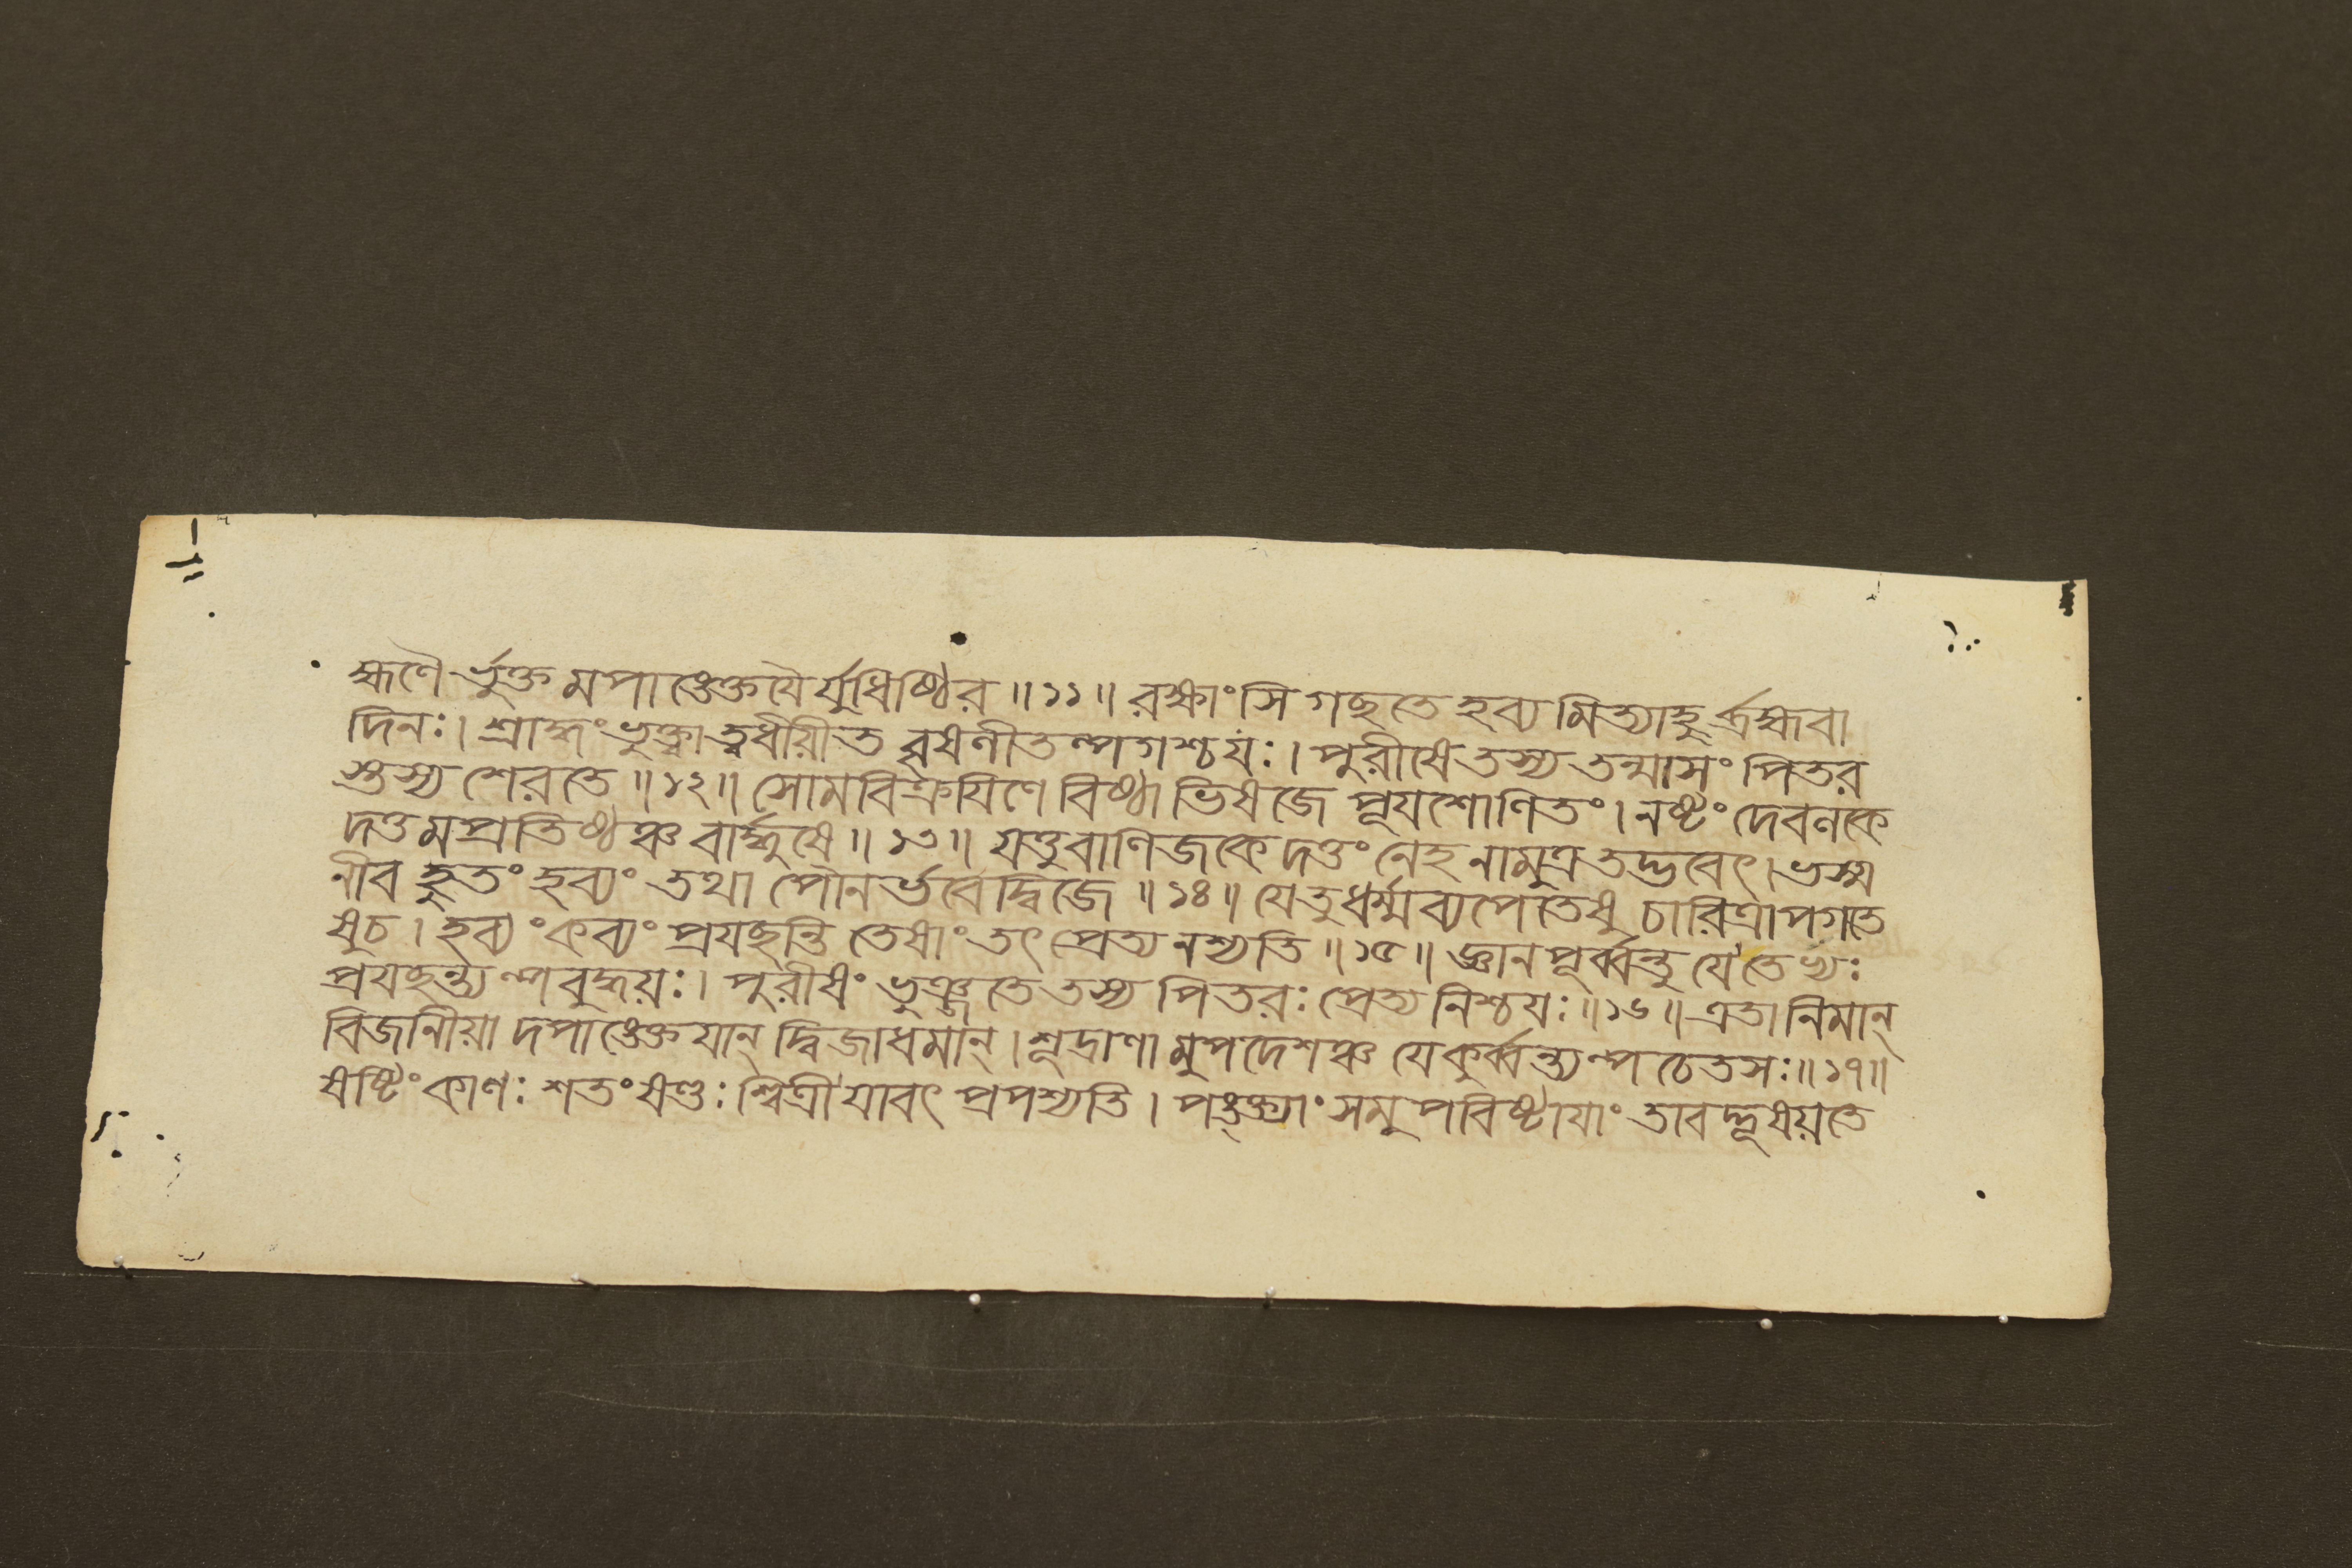 হ্মণৈর্ভুক্তমপাঙ্ক্তেযৈর্যুধিষ্ঠির ॥ ১১ ॥ রক্ষাংসি গচ্ছতে হব্যমিত্যাহুর্ব্রহ্মবা
দিনঃ । শ্রাদ্ধং ভুক্ত্বা ত্বধীয়ীত বৃষলীতল্পগশ্চ যঃ । পুরীষে তস্য তন্মাসং পিতর
স্তস্য শেরতে ॥ ১২ ॥ সোমবিক্রযিণে বিষ্ঠা ভিষজে পূযশোণিতং । নষ্টং দেবলকে
দত্তমপ্রতিষ্ঠঞ্চ বার্দ্ধুষে ॥ ১৩ ॥ যত্তু বাণিজকে দত্তং নেহ নামুত্র তদ্ভবেৎ । ভস্ম
নীব হুতং হব্যং তথা পৌনর্ভবে দ্বিজে ॥ ১৪ ॥ যে তু ধর্ম্মব্যপেতেষু চারিত্রাপগতে
ষু চ । হব্যং কব্যং প্রযচ্ছন্তি তেষাং তৎ প্রেত্য নশ্যতি ॥ ১৫ ॥ জ্ঞানপূর্ব্বন্তু যে তেভ্যঃ
প্রযচ্ছন্ত্যল্পবুদ্ধয়ঃ । পুরীষং ভুঞ্জতে তস্য পিতরঃ প্রেত্য নিশ্চযঃ ॥ ১৬ ॥ এতানিমান্
বিজানীয়াদপাঙ্ক্তেযান্ দ্বিজাধমান্ । শূদ্রাণামুপদেশঞ্চ যে কুর্ব্বন্ত্যল্পচেতসঃ ॥ ১৭ ॥
ষষ্টিং কাণঃ শতং ষণ্ডঃ শ্বিত্রী যাবৎ প্রপশ্যতি । পঙ্ক্ত্যাং সমুপবিষ্টাযাং তাবদ্দূষয়তে